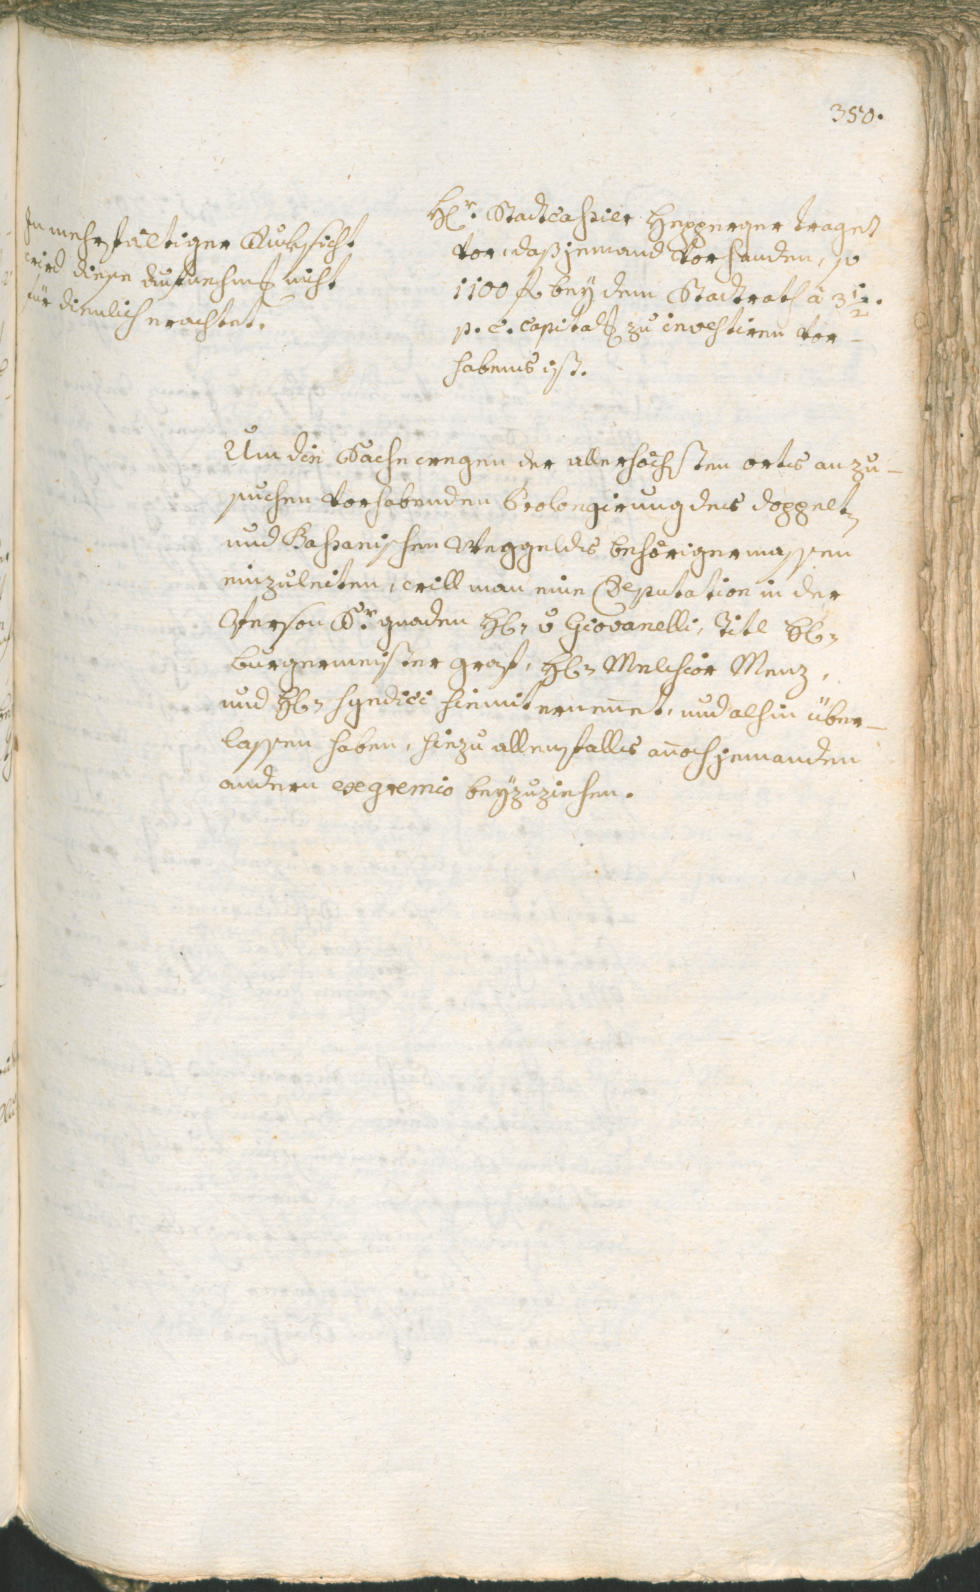 350.
In mehrfältiger Ruksicht
wird diese Aufnehm͠g nicht
für dienlich erachtet.
H͠r. Stadtcassier Hepperger traget
vor, daß jemand vorhanden, so
1100 f. bey dem Stadtrath à 3½.
p. c. capital͠r zu investiren vor-
habens ist.
Um die Sache wegen der allerhöchsten orts anzu-
suchen vorhabenden Prolongirung des doppelt͠n
und Bassanischen Weggeldes behörigermassen
einzuleiten, will man eine Deputation in der
Person Sr. gnaden H͠n v Giovanelli, Titl H͠n
burgermeister graf, H͠n Melchior Menz,
und H͠n Syndici hiemit ernen̄et, und alhin über-
lassen haben, hiezu allenfalls an̄och jemanden
andern exegremio beÿzuziehen.